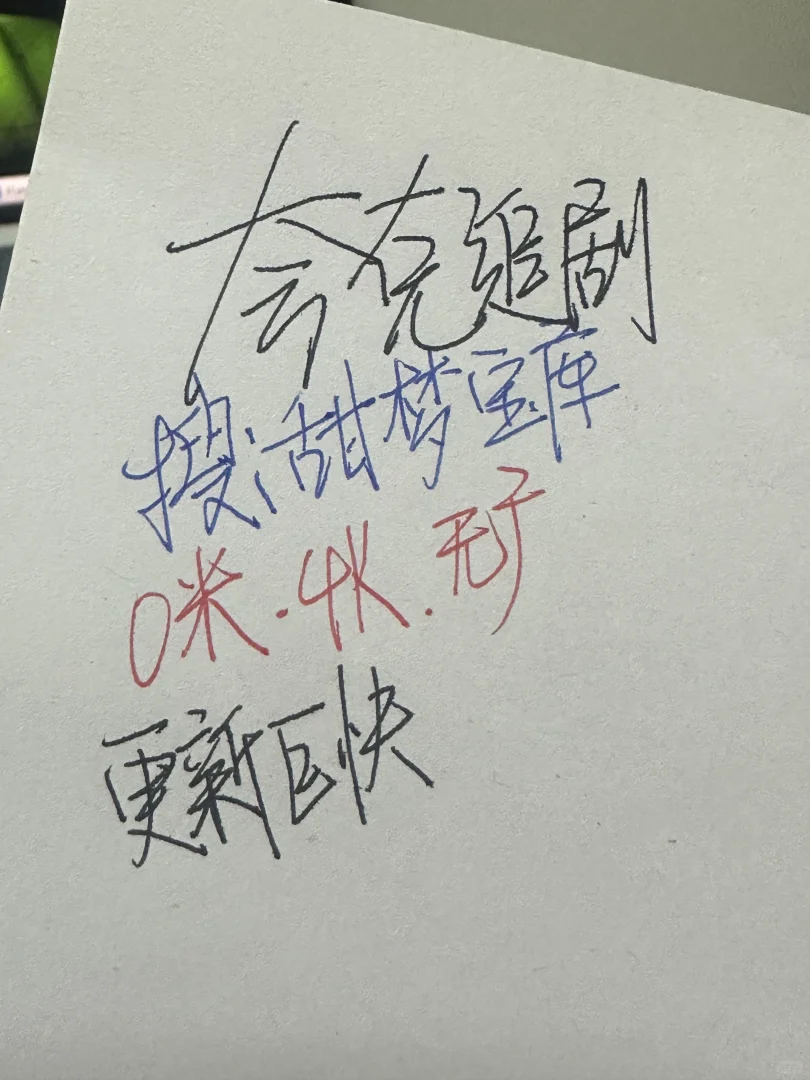 夸克追剧
搜:甜梦宝库
0米.4K.无广
更新巨快